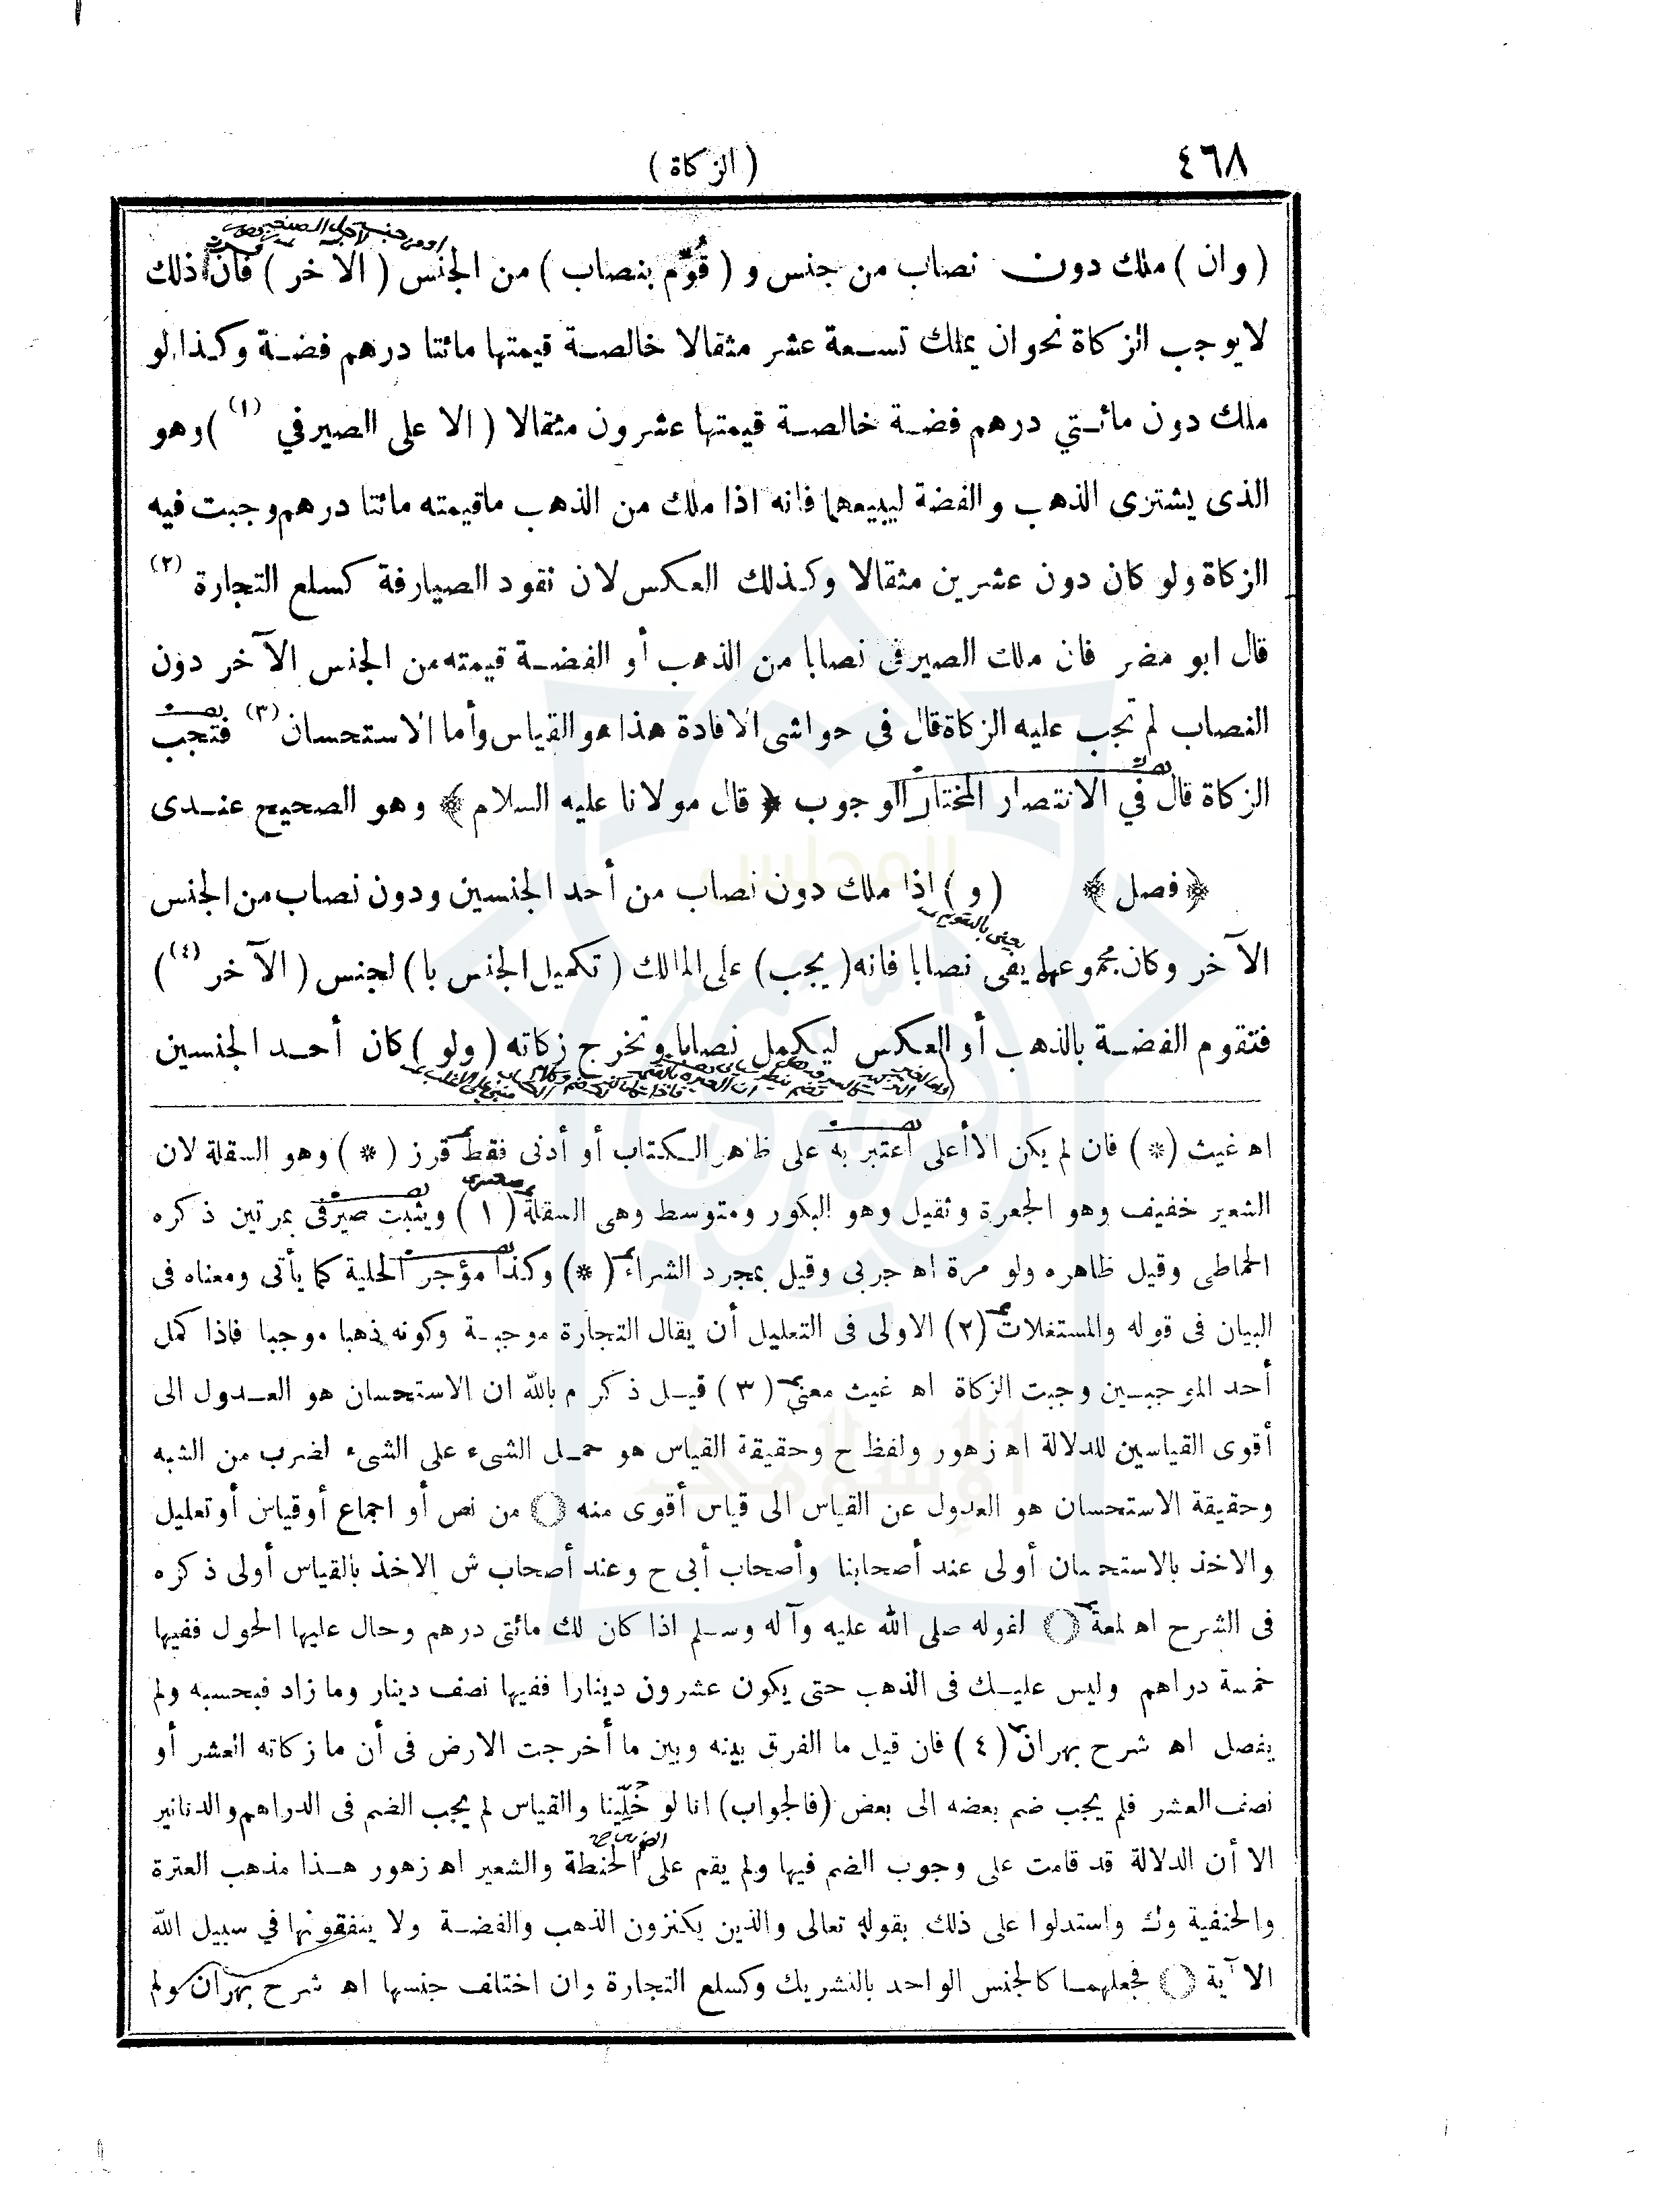 ٤٦٨
( الزكاة )
( وان ) ملك دون نصاب من جنس و ( قُوِّم بنصاب ) من الجنس ( الاخر ) فان ذلك
لايوجب الزكاة نحو ان يملك تسعة عشر مثقالا خالصة قيمتها مائتا درهم فضة وكذا لو
ملك دون مائتي درهم فضة خالصة قيمتها عشرون مثقالا ( الا على الصيرفي (١) ) وهو
الذى يشترى الذهب والفضة ليبيعهما فانه اذا ملك من الذهب ماقيمته مائتا درهم وجبت فيه
الزكاة ولو كان دون عشرين مثقالا وكذلك العكس لان نقود الصيارفة كسلع التجارة (٢)
قال ابو مضر فان ملك الصيرفى نصابا من الذهب أو الفضة قيمته من الجنس الآخر دون
النصاب لم تجب عليه الزكاة قال في حواشى الافادة هذا هو القياس وأما الاستحسان (٣) فتجب
الزكاة قال في الانتصار المختار الوجوب ﴿ قال مولانا عليه السلام ﴾ وهو الصحيح عندى
﴿ فصل ﴾ ( و ) اذا ملك دون نصاب من أحد الجنسين ودون نصاب من الجنس
يعني بالتقويم
الآخر وكان مجموعهما يفى نصابا فانه ( يجب ) على المالك ( تكميل الجنس با ) لجنس ( الآخر (٤) )
فتقوم الفضة بالذهب أو العكس ليكمل نصابا وتخرج زكاته ( ولو ) كان أحد الجنسين
اه غيث (*) فان لم يكن الا أعلى اعتبر به على ظاهر الكتاب أو أدنى فقط قرز (*) وهو السقلة لان
الشعير خفيف وهو الجعرة وثقيل وهو البكور ومتوسط وهى السقلة (١) ويثبت صيرفى بمرتين ذكره
الحماطى وقيل ظاهره ولو مرة اه جربى وقيل بمجرد الشراء (*) وكذا مؤجر الحلية كما يأتى ومعناه فى
البيان فى قوله والمستغلات (٢) الاولى فى التعليل أن يقال التجارة موجبة وكونه ذهبا موجبا فاذا كمل
أحد الموجبين وجبت الزكاة اه غيث معنى (٣) قيل ذكر م بالله ان الاستحسان هو العدول الى
أقوى القياسين للدلالة اه زهور ولفظ ح وحقيقة القياس هو حمل الشىء على الشىء لضرب من الشبه
وحقيقة الاستحسان هو العدول عن القياس الى قياس أقوى منه ○ من نص أو اجماع أو قياس أو تعليل
والاخذ بالاستحسان أولى عند أصحابنا وأصحاب أبى ح وعند أصحاب ش الاخذ بالقياس أولى ذكره
فى الشرح اه لمعة ○ لقوله صلى الله عليه وآله وسلم اذا كان لك مائتى درهم وحال عليها الحول ففيها
خمسة دراهم وليس عليك فى الذهب حتى يكون عشرون دينارا ففيها نصف دينار وما زاد فبحسبه ولم
يفصل اه شرح بهران (٤) فان قيل ما الفرق بينه وبين ما أخرجت الارض فى أن ما زكاته العشر أو
نصف العشر فلم يجب ضم بعضه الى بعض (فالجواب) انا لو خُلِّينا والقياس لم يجب الضم فى الدراهم والدنانير
الا أن الدلالة قد قامت على وجوب الضم فيها ولم يقم على الحنطة والشعير اه زهور هذا مذهب العترة
والحنفية وك واستدلوا على ذلك بقوله تعالى والذين يكنزون الذهب والفضة ولا ينفقونها في سبيل الله
الآية ○ فجعلهما كالجنس الواحد بالتشريك وكسلع التجارة وان اختلف جنسها اه شرح بهران ولم